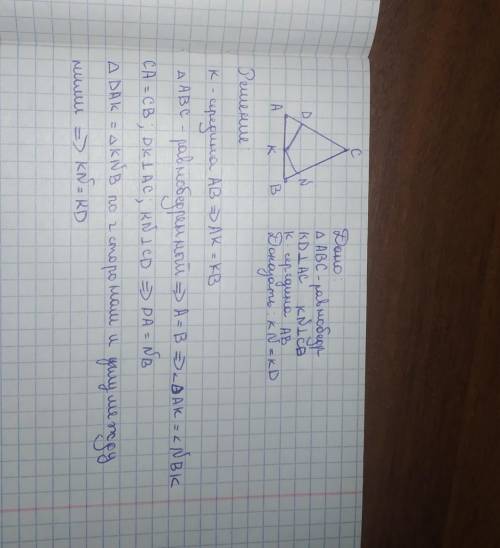 Дано
△ABC - равнобедр
KD⊥AC KN⊥CB
K середина AB
Доказать: KN = KD
C
D
N
A
K
B
Решение:
K - середина AB ⇒ AK = KB
△ABC - равнобедренной ⇒ A = B ⇒ ∠DAK = ∠NBK
CA = CB; DK⊥AC; KN⊥CD ⇒ DA = NB
△DAK = △KNB по 2 сторонам и углу между
ними ⇒ KN = KD